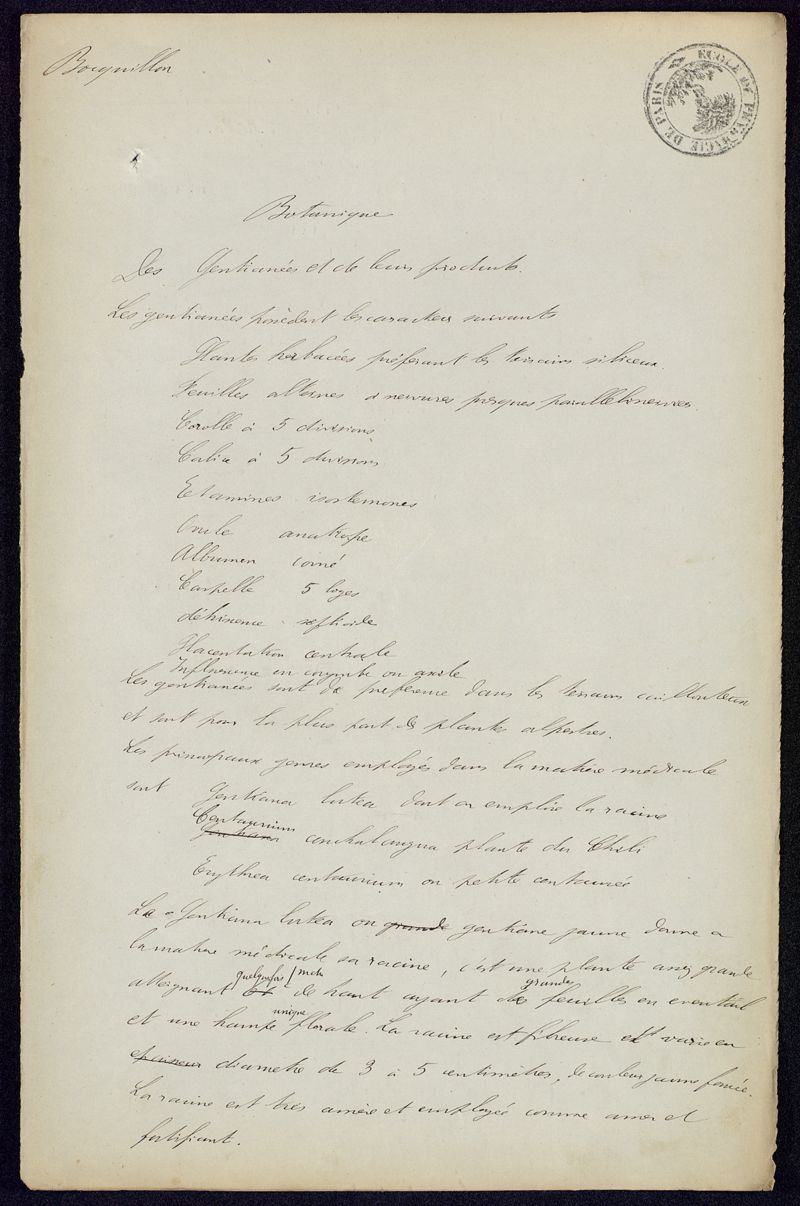 Bocquillon
ECOLE DE PHARMACIE DE PARIS
Botanique
Des Gentianées et de leurs produits.
Les gentianées possèdent les caractères suivants
Plantes herbacées préférant les terrains siliceux.
Feuilles alternes à nervures presques parallelinerviées.
Corolle à 5 divisions
Calice à 5 divisions
Etamines isostemones
Ovule anatrope
Albumen corné
Carpelle 5 loges
déhiscence septicide
Placentation centrale
Inflorescence en corymbe ou axile
Les gentianées sont de préférence dans les terrains caillouteux
et sont pour la plus part des plantes alpestres.
Les principaux genres employés dans la matière médicale
sont Gentiana lutea dont on emploie la racine
Centaurium
Gentiana canchalangua plante du Chili
Erythrea centaurium ou petite centaurée
La Gentiana lutea ou grande gentiane jaune donne a
la matière médicale sa racine, c'est une plante assez grande
quelquefois 1 met grandes
atteignant de haut ayant des feuilles en eventail
unique
et une hampe florale. La racine est fibreuse et varie en
epaisseur diametre de 3 à 5 centimètres, de couleur jaune foncée.
La racine est très amère et employée comme amer et
fortifiant.